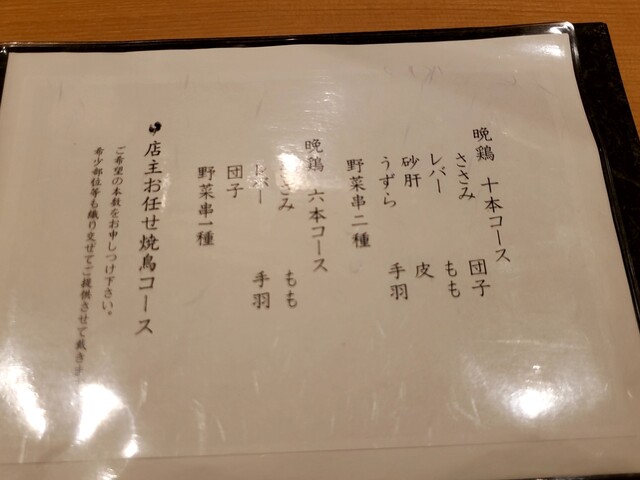 晩鶏 十本コース
ささみ 団子
レバー もも
砂肝 皮
うずら 手羽
野菜串二種
晩鶏 六本コース
ささみ もも
レバー 手羽
団子
野菜串一種
店主お任せ焼鳥コース
ご希望の本数をお申しつけ下さい。
希少部位等も織り交ぜてご提供させて戴きま